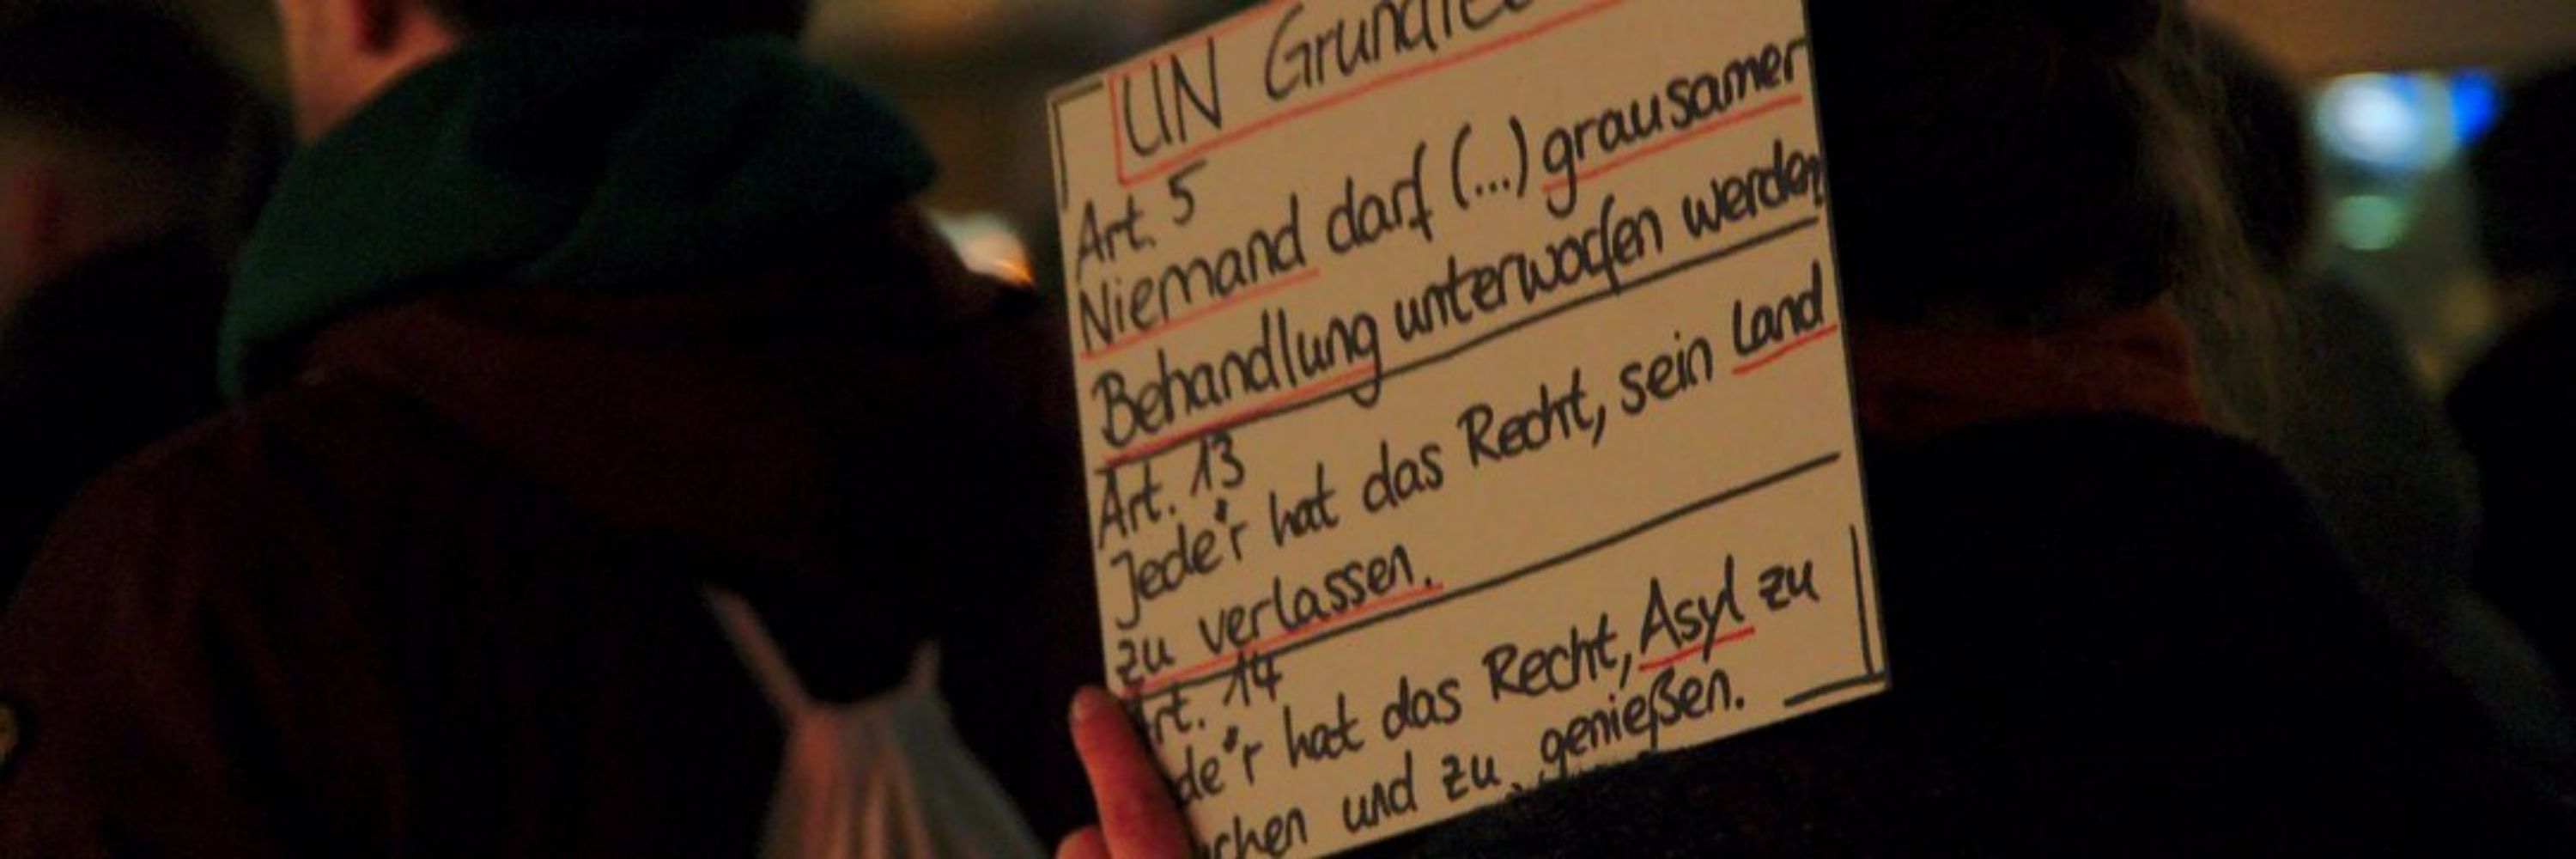 UN
Art. 5
Niemand darf (...) grausamer
Behandlung unterworfen werden
Art. 13
Jede*r hat das Recht, sein Land
zu verlassen.
Art. 14
hat das Recht, Asyl zu
und zu genießen.